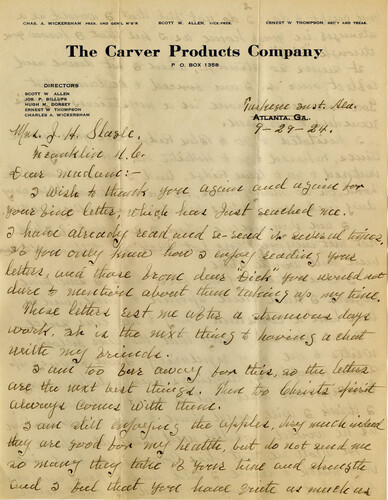 CHAS. A. WICKERSHAM PRES. AND GEN'L M'G'R. SCOTT W. ALLEN, VICE-PRES. ERNEST W. THOMPSON, SEC'Y AND TREAS.
The Carver Products Company
P. O. BOX 1358
DIRECTORS
SCOTT W. ALLEN
JOS. P. BILLUPS
HUGH M. DORSEY
ERNEST W. THOMPSON
CHARLES A. WICKERSHAM
Tuskegee Inst. Ala.
ATLANTA, GA.
9-29-24.
Mrs. J. H. Slagle,
Franklin N.C.
Dear madame:-
I wish to thank you again and again for
your fine letter, which has just reached me.
I have already read and re-read it several times,
if you only knew how I enjoy reading your
letters, and those from dear "Dick" you would not
dare to mention about them taking up my time.
These letters rest me after a strenuous days
work. it is the next thing to having a chat
with my friends.
I am too far away for this, so the letters
are the next best things. Then too Christs spirit
always comes with them.
I am still enjoying the apples, very much indeed
they are good for my health, but do not send me
so many they take of your time and strength
and I feel that you have quite as much as